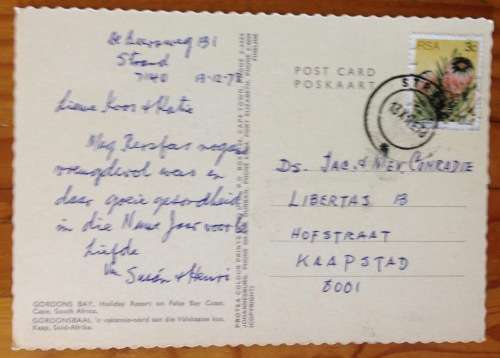 De Beersweg 131
Strand
7140
Liewe Koos & Katie
Mag Kersfees nogeens
vreugdevol wees en
daar goeie gesondheid
in die Nuwe Jaar voorlê
Liefde
Van Susán & Henri
GORDONS BAY, Holiday Resort on False Bay Coast.
Cape, South Africa.
GORDONSBAAI, 'n vakansie-oord aan die Valsbaaise kus.
Kaap, Suid-Afrika.
PROTEA COLOUR PRINTS
JOHANNESBURG
(COPYRIGHT)
POST CARD
POSKAART
RSA 3c
Ds. Jac. & Mev. Conradie
LIBERTAS 13
HOFSTRAAT
KAAPSTAD
8001